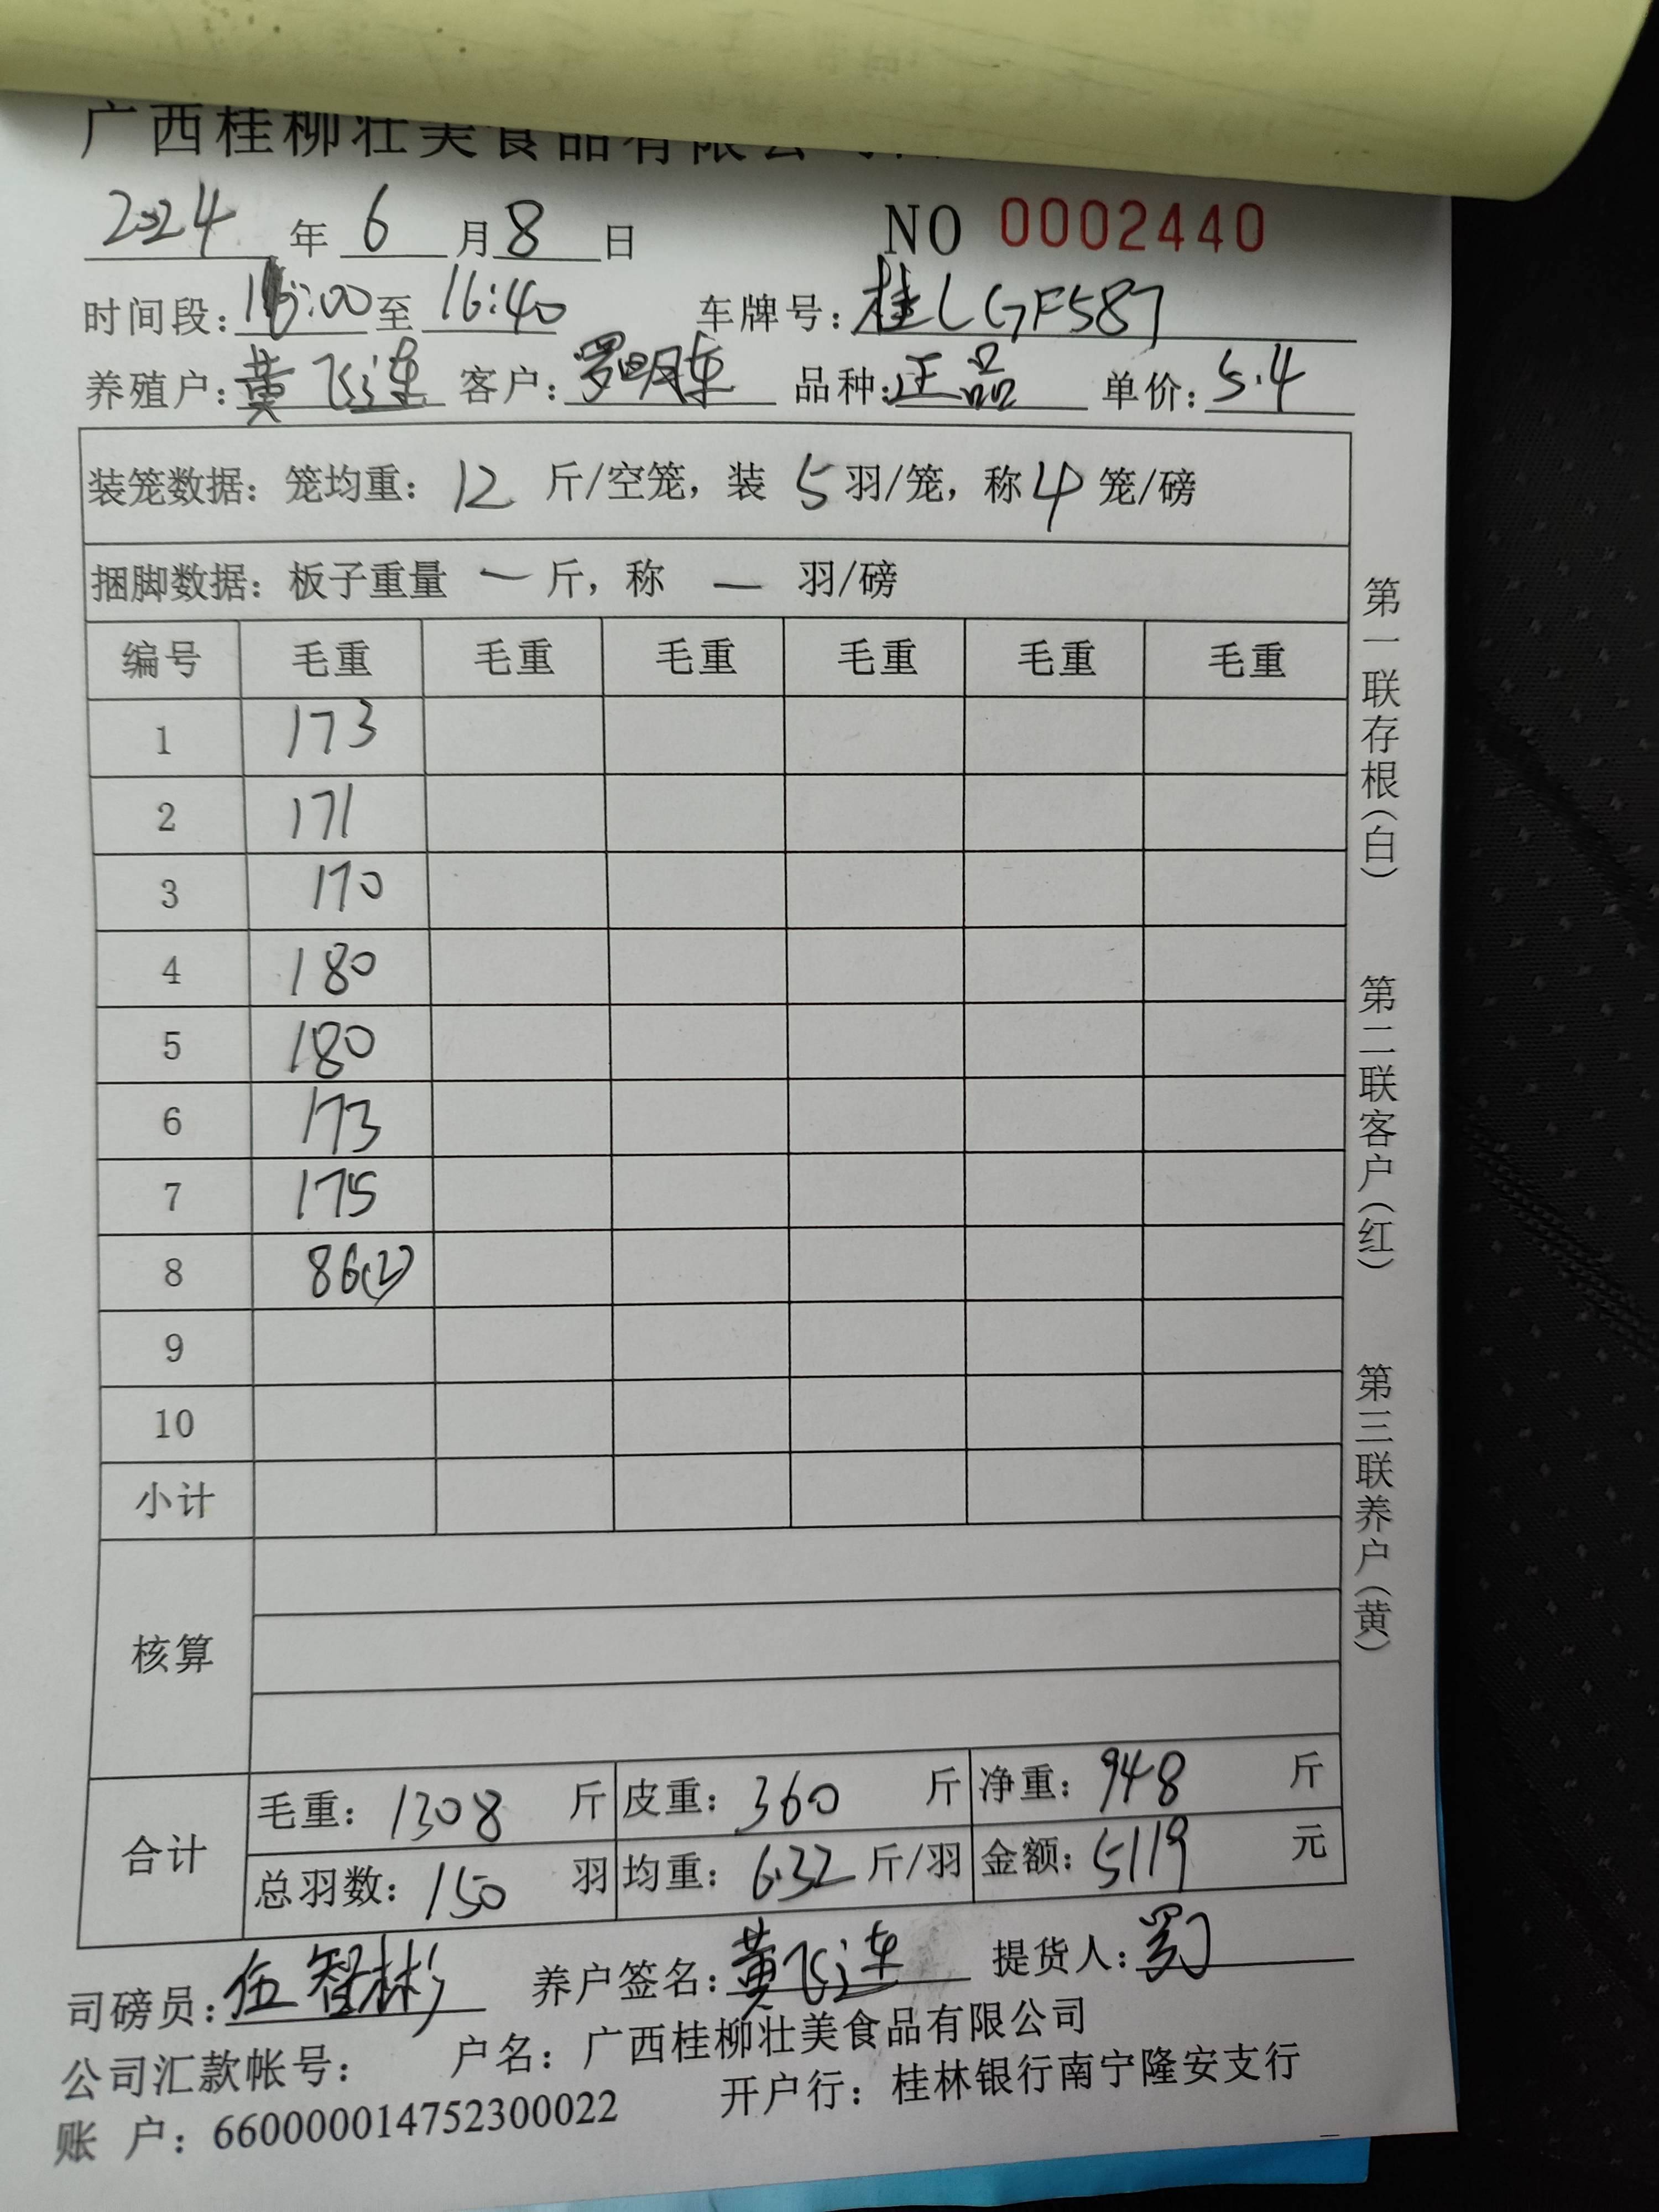 广西桂柳壮美食品有限公
2024 年 6 月 8 日 NO 0002440
时间段: 16:00 至 16:40 车牌号: 桂LGF587
养殖户: 黄飞连 客户: 罗明东 品种: 正品 单价: 5.4
装笼数据: 笼均重: 12 斤/空笼, 装 5 羽/笼, 称 4 笼/磅
捆脚数据: 板子重量 一 斤, 称 一 羽/磅
编号 毛重 毛重 毛重 毛重 毛重 毛重
1 173
2 171
3 170
4 180
5 180
6 173
7 175
8 86(2)
9
10
小计
核算
合计
毛重: 1308 斤 皮重: 360 斤 净重: 948 斤
总羽数: 150 羽 均重: 6.32 斤/羽 金额: 5119 元
司磅员: 伍智彬 养户签名: 黄飞连 提货人:
公司汇款帐号: 户名: 广西桂柳壮美食品有限公司
账 户: 660000014752300022 开户行: 桂林银行南宁隆安支行
第一联存根(白) 第二联客户(红) 第三联养户(黄)